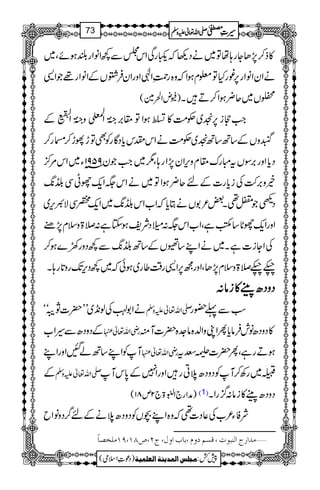 سیرتِ مصطفیٰ صلی اللہ تعالیٰ علیہ وسلم 73
ذکر کا ارادہ کیا جا رہا تھا تو میں نے دیکھا کہ یکبارگی اس مجلس سے کچھ انوار بلند ہوئے، میں
نے ان انوار پر غور کیا تو معلوم ہوا کہ وہ رحمتِ الٰہی اور ان فرشتوں کے انوار تھے جو ایسی
محفلوں میں حاضر ہوا کرتے ہیں۔ (فیوض الحرمین)
جب حجاز پر نجدی حکومت کا تسلط ہوا تو مقابر جنۃ المعلی و جنۃ البقیع کے
گنبدوں کے ساتھ ساتھ نجدی حکومت نے اس مقدس یادگار کو بھی توڑ پھوڑ کر مسمار کر
دیا اور برسوں یہ مبارک مقام ویران پڑا رہا، مگر میں جب جون ۱۹۵۹ء میں اس مرکز
خیر و برکت کی زیارت کے لئے حاضر ہوا تو میں نے اس جگہ ایک چھوٹی سی بلڈنگ
دیکھی جو مقفل تھی۔ بعض عربوں نے بتایا کہ اب اس بلڈنگ میں ایک مختصر سی لائبریری
اور ایک چھوٹا سا مکتب ہے، اب اس جگہ نہ میلاد شریف ہو سکتا ہے نہ صلاۃ و سلام پڑھنے
کی اجازت ہے۔ میں نے اپنے ساتھیوں کے ساتھ بلڈنگ سے کچھ دور کھڑے ہو کر
چپکے چپکے صلاۃ و سلام پڑھا، اور مجھ پر ایسی رقت طاری ہوئی کہ میں کچھ دیر تک روتا رہا۔
دودھ پینے کا زمانہ
سب سے پہلے حضور صلی اللہ تعالیٰ علیہ وسلم نے ابولہب کی لونڈی ’’حضرت ثویبہ‘‘
کا دودھ نوش فرمایا پھر اپنی والدہ ماجدہ حضرت آمنہ رضی اللہ تعالیٰ عنہا کے دودھ سے سیراب
ہوتے رہے، پھر حضرت حلیمہ سعدیہ رضی اللہ تعالیٰ عنہا آپ کو اپنے ساتھ لے گئیں اور اپنے
قبیلہ میں رکھ کر آپ کو دودھ پلاتی رہیں اور انہیں کے پاس آپ صلی اللہ تعالیٰ علیہ وسلم کے
دودھ پینے کا زمانہ گزرا۔(۱) (مدارج النبوۃ ج۲ ص۱۸)
شرفاء عرب کی عادت تھی کہ وہ اپنے بچوں کو دودھ پلانے کے لئے گرد و نواح
……مدارج النبوت ، قسم دوم ،باب اول، ج۲،ص۱۸،۱۹ملخصاً
پیش کش: مجلس المدینۃ العلمیۃ (دعوت اسلامی)